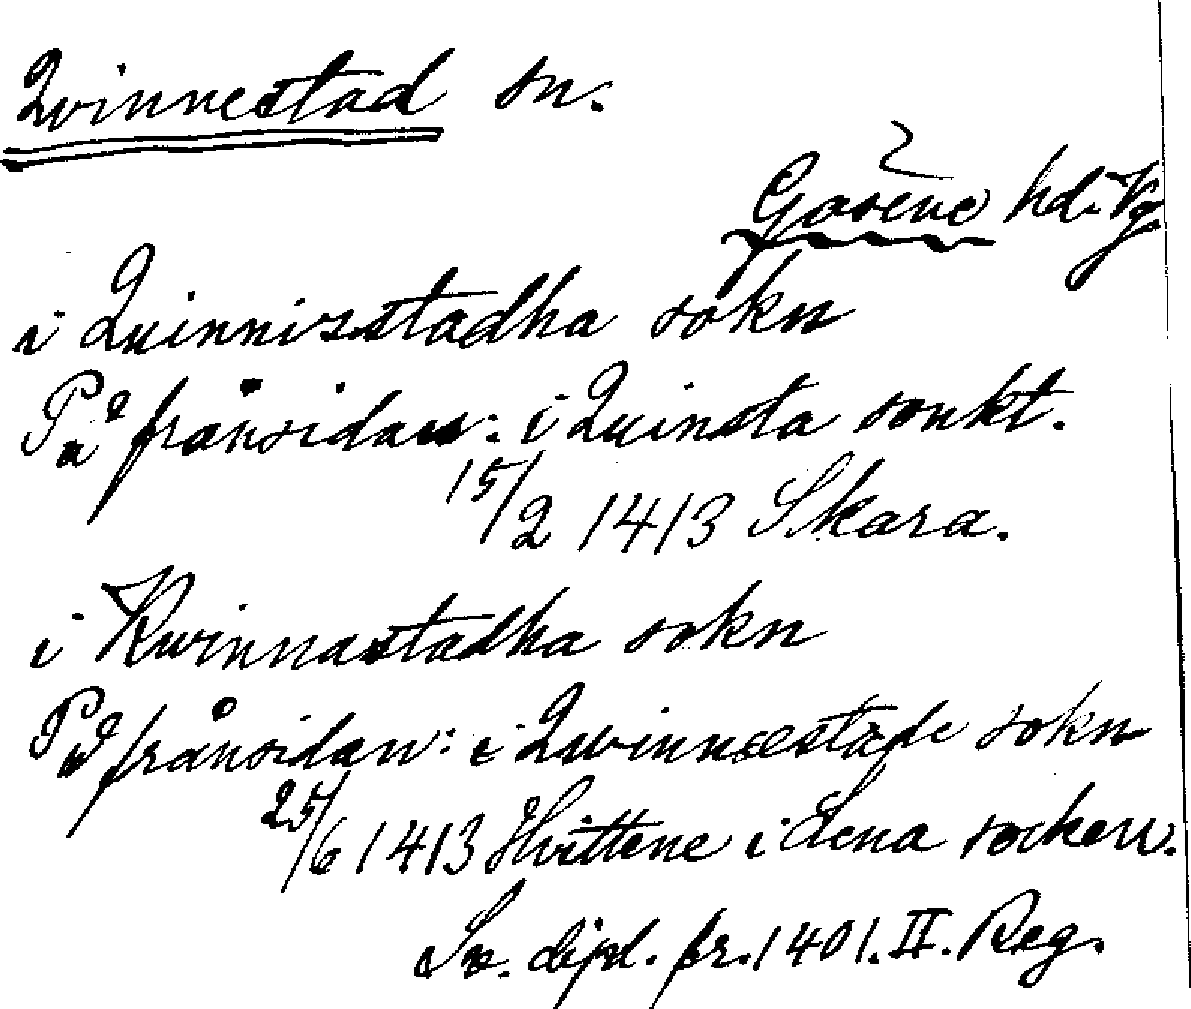 Qvinnestad sn.
2
Gäsene hd. Vg.
i Quinnizstadha sokn
På frånsidan: i Quinsta sonkt.
15/2 1413 Skara.
i Kwinnastadha sokn
På frånsidan: i Qwinnæstaþe sokn
25/6 1413 Hvittene i Lena socken.
Sv. dipl. fr. 1401. II. Reg.